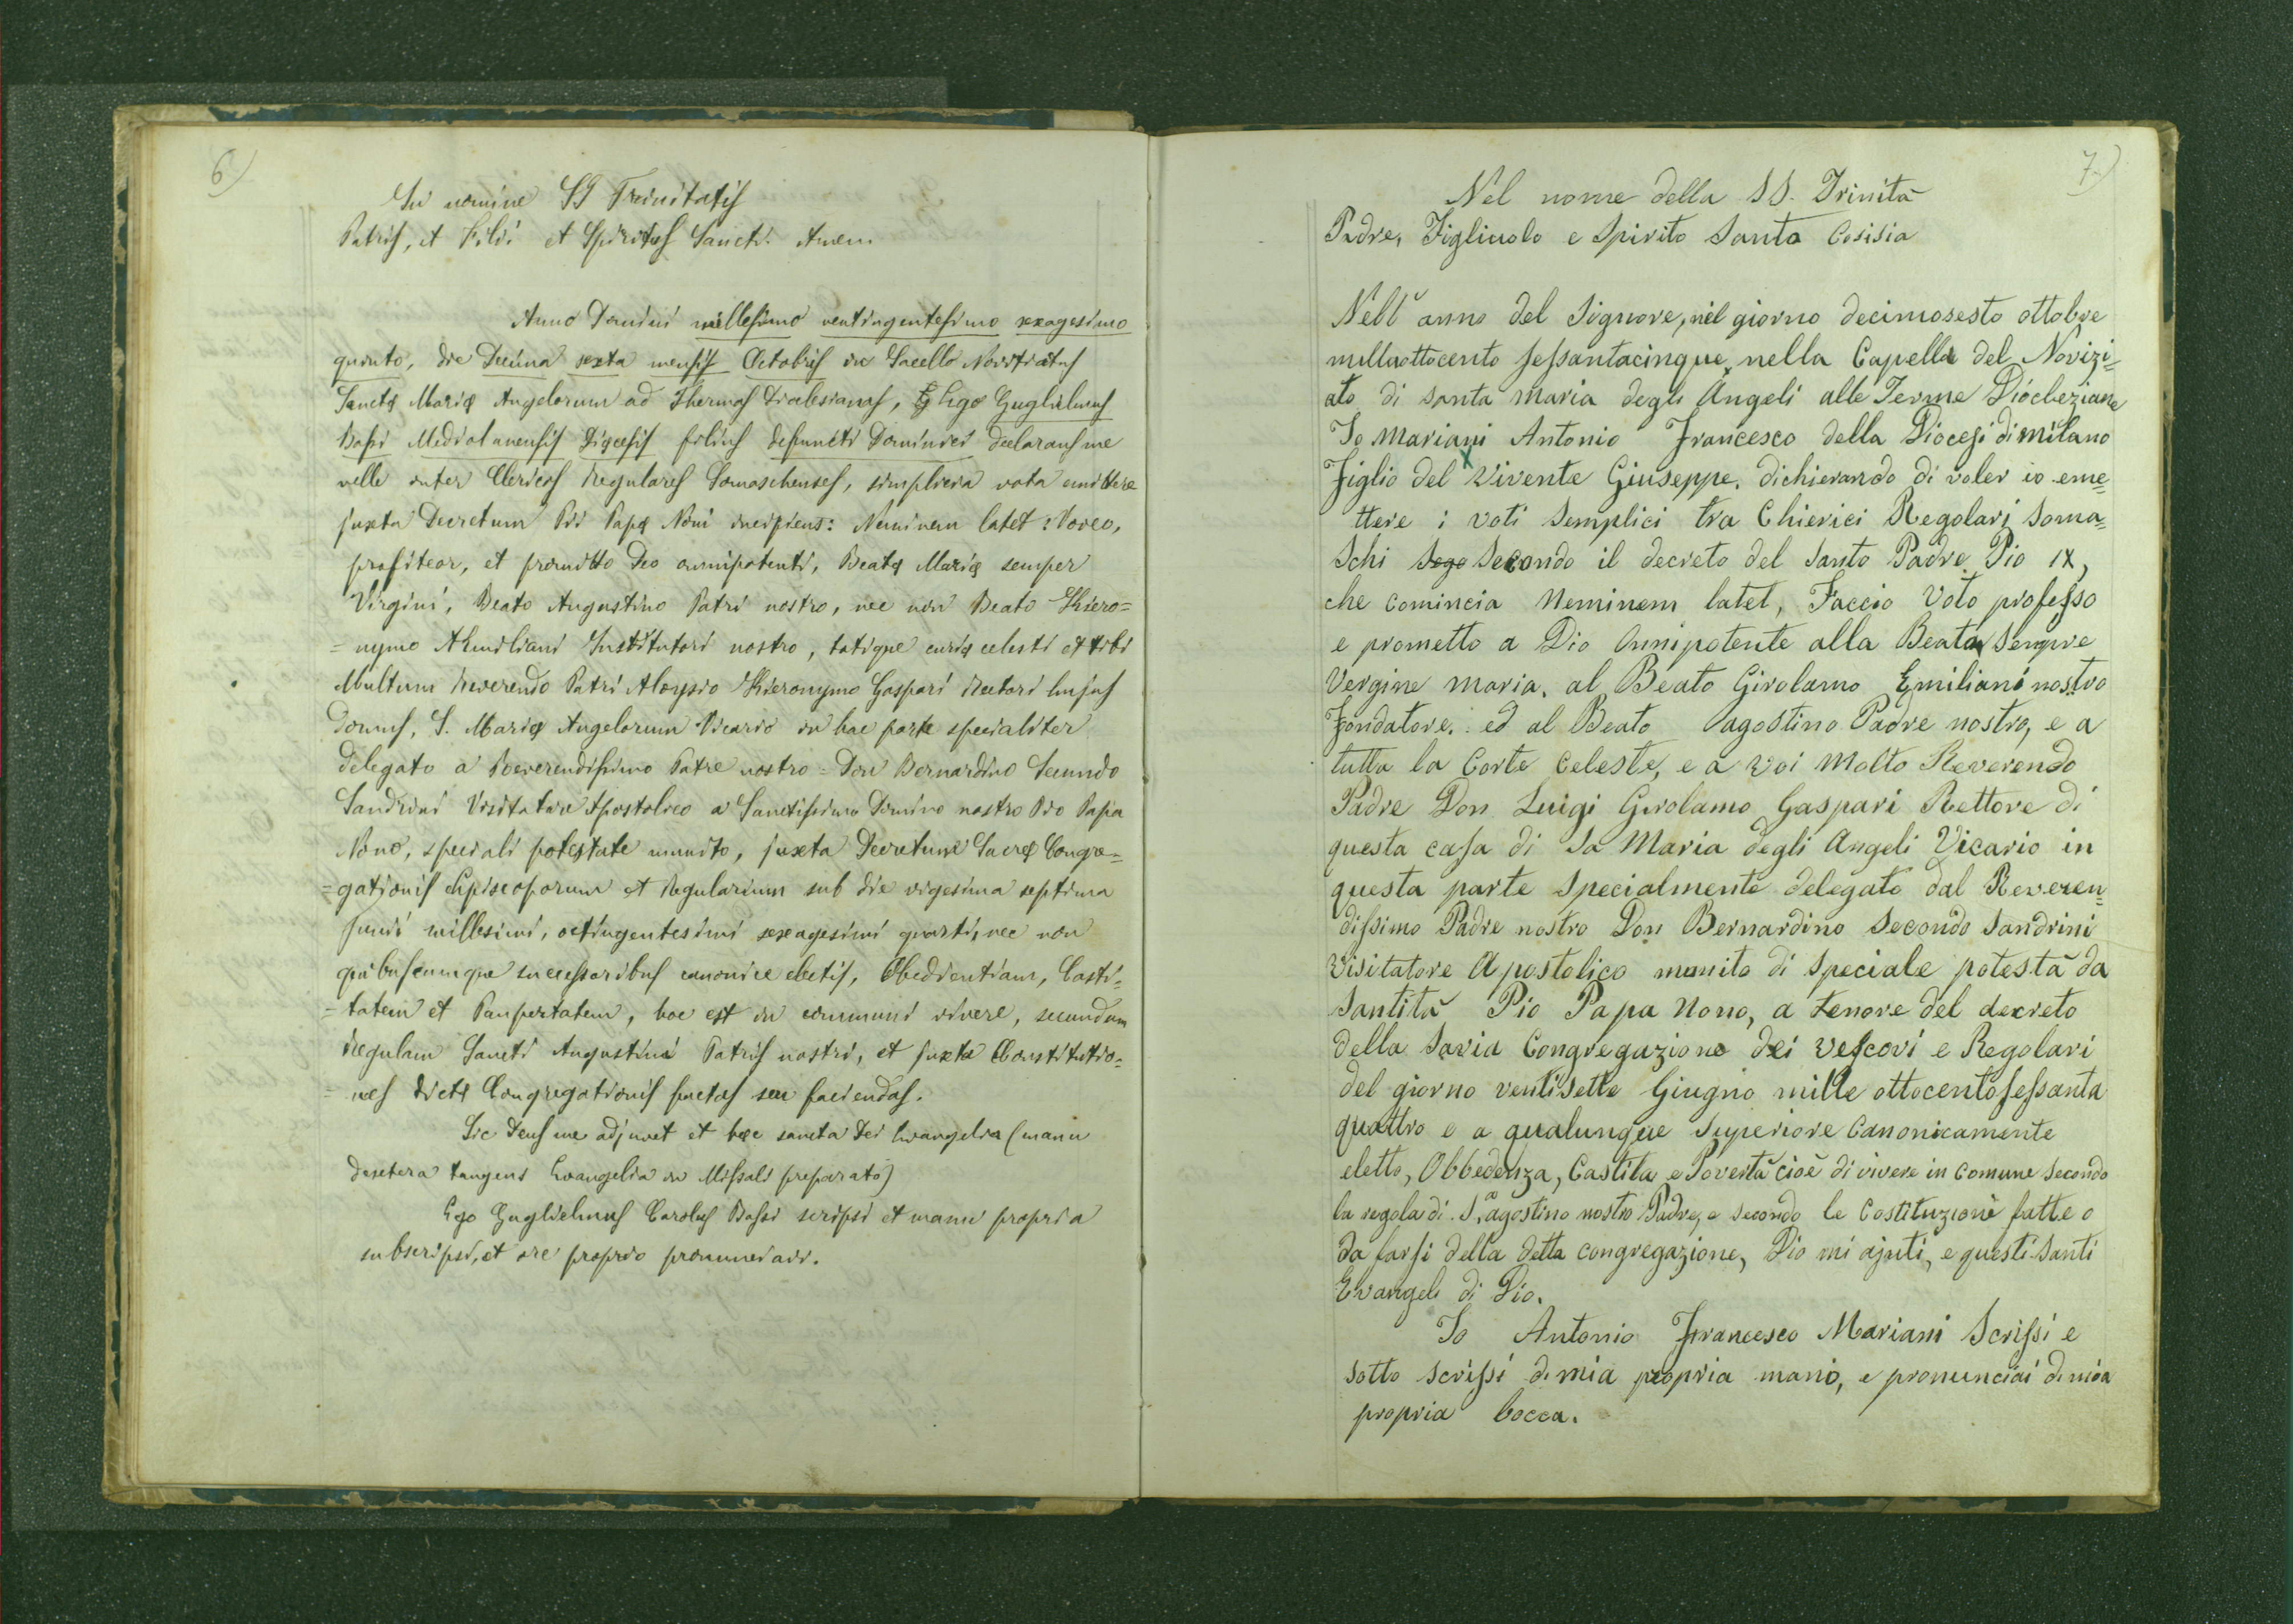 6)
In nomine SS Trinitatis
Patris, et Filii et Spiritus Sancti. Amen.
Anno Domini millesimo ventingentesimo sexagesimo
quinto, die Decima sexta mensis Octobris in Sacello Novitiatus
Sanctę Marię Angelorum ad Thermas Dioclesianas, Ego Guglielmus
Bassi Mediolanensis Dięcesis filius defuncti Dominici declarans me
velle inter Clericos Regulares Somaschenses, simplicia vota emittere
juxta Decretum Pii Papę Noni incipiens: Neminem latet: Voveo,
profiteor, et promitto Deo omnipotenti, Beatę Marię semper
Virgini, Beato Augustino Patri nostro, nec non Beato Hiero=
=nymo Aemiliani Institutori nostro, totique curię celesti et tibi
Multum Reverendo Patri Aloysio Hieronymo Gaspari Rectori hujus
Domus, S. Marię Angelorum Vicario in hac parte specialiter
delegato a Reverendissimo Patre nostro = Don Bernardino Secundo
Sandrini Visitatore Apostolico a Sanctissimo Domino nostro Pio Papa
Nono, speciali potestate munito, juxta Decretum Sacrę Congre=
=gationis Episcoporum et Regularium sub die vigesima septima
Junii millesimi, octingentesimi sexagesimi quarti, nec non
quibuscumque successoribus canonice electis, Obedientiam, Casti=
=tatem et Paupertatem, hoc est in communi vivere, secundum
Regulam Sancti Augustini Patris nostri, et juxta Constitutio=
=nes dictę Congregationis factas seu faciendas.
Sic Deus me adjuvet et hęc sancta Dei Evangelia (manu
dextera tangens Evangelia in Missali preparato)
Ego Guglielmus Carolus Bassi scripsi et manu propria
subscripsi, et ore proprio pronunciavi.
7)
Nel nome della SS. Trinità
Padre, Figliuolo e Spirito Santo Cosisia
Nell' anno del Signore, nel giorno decimosesto ottobre
milleottocento sessantacinque, nella Capella del Novizi=
ato di santa maria degli Angeli alle Terme Diocleziane
Io Mariani Antonio Francesco della Diocesi di milano
Figlio del vivente Giuseppe, dichierando di voler io eme=
ttere i voti semplici tra Chierici Regolari Soma=
schi sego secondo il decreto del santo Padre Pio IX,
che comincia Neminem latet, Faccio voto professo
e prometto a Dio Onnipotente alla Beata sempre
Vergine maria, al Beato Girolamo Emiliani nostro
Fondatore, ed al Beato agostino Padre nostro, e a
tutta la Corte celeste, e a voi Molto Reverendo
Padre Don Luigi Girolamo Gaspari Rettore di
questa casa di Sa Maria degli Angeli Vicario in
questa parte specialmente delegato dal Reveren=
dissimo Padre nostro Don Bernardino Secondo Sandrini
visitatore Apostolico munito di speciale potestà da
santità Pio Papa Nono, a tenore del decreto
della Savia Congregazione dei vescovi e Regolari
del giorno ventisette Giugno mille ottocentosessanta
quattro e a qualunque superiore Canonicamente
eletto, Obbedenza, Castita e Povertà cioè di vivere in comune secondo
la regola di S. agostino nostro Padre, e secondo le Costituzione fatte o
da farsi della detta congregazione, Dio mi ajuti, e questi santi
Evangeli di Dio.
Io Antonio Francesco Mariani Scrissi e
sotto scrissi di mia propria mano, e pronunciai di mia
propria bocca.